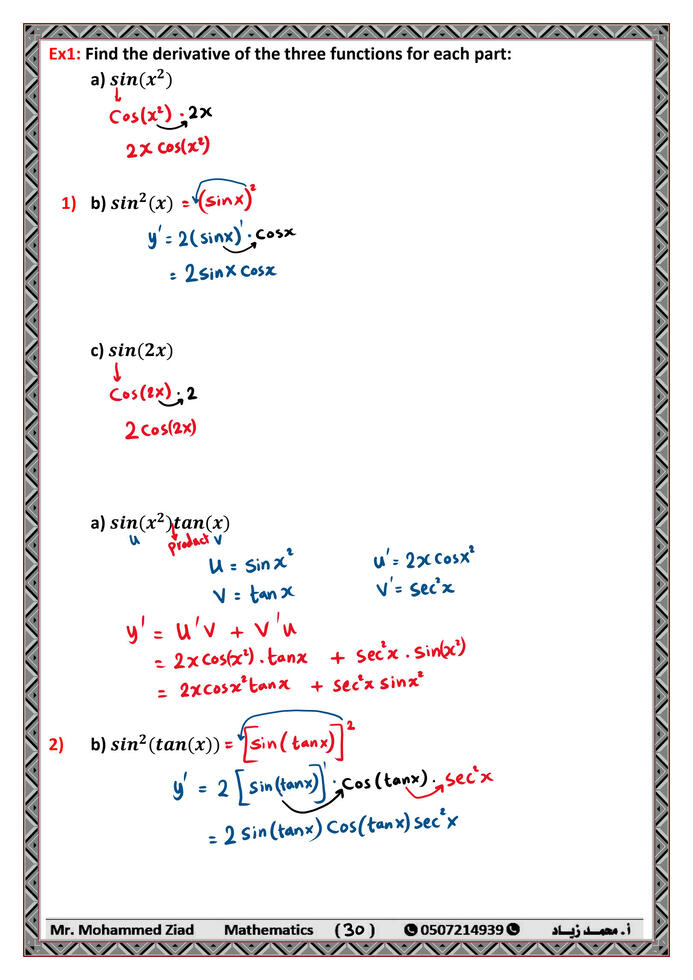 Ex1: Find the derivative of the three functions for each part:
a) sin(x²)
Cos(x²) · 2x
2x cos(x²)
1) b) sin²(x) = (sinx)²
y' = 2(sinx)¹ · cosx
= 2sinx cosx
c) sin(2x)
Cos(2x) · 2
2cos(2x)
a) sin(x²)tan(x)
u product v
u = sinx² u' = 2x cosx²
v = tanx v' = sec²x
y' = u'v + v'u
= 2xcos(x²) · tanx + sec²x · sin(x²)
= 2xcosx²tanx + sec²x sinx²
2) b) sin²(tan(x)) = [sin(tanx)]²
y' = 2[sin(tanx)]¹ · Cos(tanx) · sec²x
= 2 sin(tanx) Cos(tanx) sec²x
Mr. Mohammed Ziad Mathematics (30) 0507214939 أ. محمد زياد